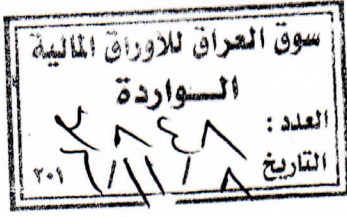 سوق العراق للاوراق المالية
الـــواردة
العدد : ٢٨٤٨
التاريخ ٨ / ١١ / ٢٠١٦